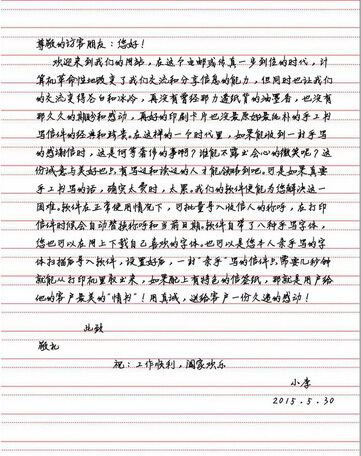 尊敬的访客朋友：您好！
欢迎来到我们的网站，在这个电邮或传真一步到位的时代，计
算机革命性地改变了我们交流和分享信息的能力，但同时也让我们
的交流变得苍白和冰冷，再没有曾经那力透纸背的油墨香，也没有
那久久的期盼和感动，再好的印刷卡片也没最原始最纯朴的手工书
写信件的经典和珍贵。在这样的一个时代里，如果能收到一封手写
的感谢信时，这是何等奢侈的事啊？谁能不露出会心的微笑呢？这
份诚意与美好也只有写过和读过的人才能领略到吧。可是如果真要
手工书写的话，确实太费时，太累。我们的软件便能为您解决这一
困难。软件在正常使用情况下，可批量导入收信人的称呼，在打印
信件时候会自动替换称呼和当前日期。软件自带了八种手写字体，
您也可以在网上下载自己喜欢的字体。也可以是您本人亲手写的字
体扫描后导入软件，设置好后，一封“亲手”写的信件只需要几秒钟
就能从打印机里取出来，如果配上有特色的信签纸，那就是用户给
他的客户最美的“情书”！用真诚，送给客户一份久违的感动！
此致
敬礼
祝：工作顺利，阖家欢乐
小李
2015.5.30